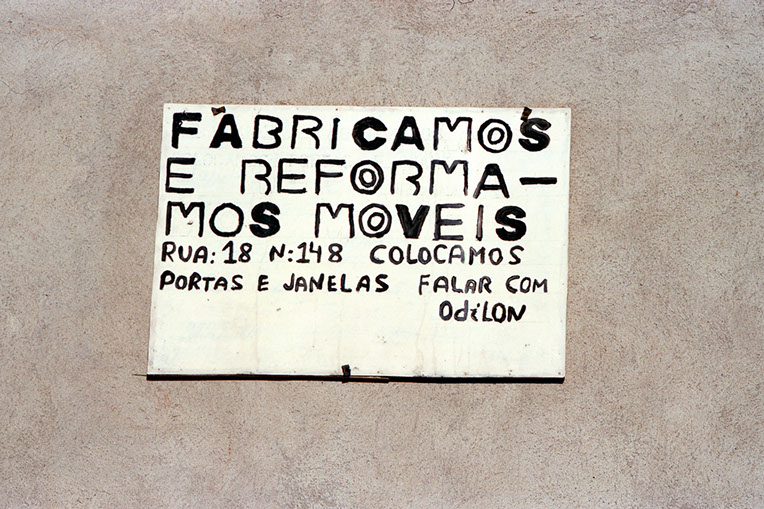 FABRICAMOS
E REFORMA-
MOS MOVEIS
RUA: 18 N:148 COLOCAMOS
PORTAS E JANELAS FALAR COM
OdiLON